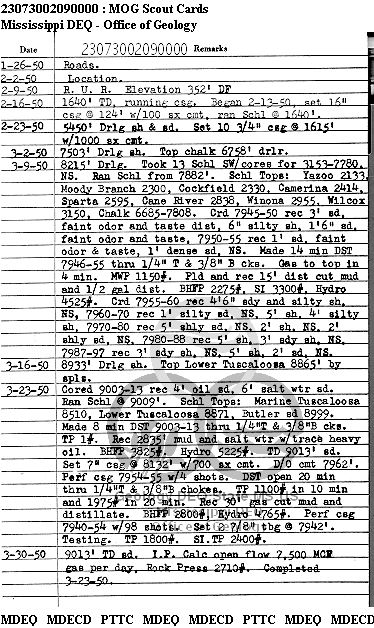 23073002090000 : MOG Scout Cards
Mississippi DEQ - Office of Geology
Date 23073002090000 Remarks
1-26-50 Roads.
2-2-50 Location.
2-9-50 R. U. R. Elevation 352' DF
2-16-50 1640' TD, running csg. Began 2-13-50, set 16"
csg @ 124' w/100 sx cmt, ran Schl @ 1640'.
2-23-50 5450' Drlg sh & sd. Set 10 3/4" csg @ 1615'
w/1000 sx cmt.
3-2-50 7503' Drlg sh. Top chalk 6758' drlr.
3-9-50 8215' Drlg. Took 13 Schl SW/cores for 3153-7780,
NS. Ran Schl from 7882'. Schl Tops: Yazoo 2133,
Moody Branch 2300, Cockfield 2330, Camerina 2414,
Sparta 2595, Cane River 2838, Winona 2955, Wilcox
3150, Chalk 6685-7808. Crd 7945-50 rec 3' sd,
faint odor and taste dist, 6" silty sh, 1'6" sd,
faint odor and taste, 7950-55 rec 1' sd, faint
odor & taste, 1' dense sd, NS. Made 14 min DST
7946-55 thru 1/4" T & 3/8" B cks. Gas to top in
4 min. MWP 1150#. Pld and rec 15' dist cut mud
and 1/2 gal dist. BHFP 2275#. SI 3300#. Hydro
4525#. Crd 7955-60 rec 4'6" sdy and silty sh,
NS, 7960-70 rec 1' silty sd, NS, 5' sh, 4' silty
sh, 7970-80 rec 5' shly sd, NS, 2' sh, NS, 2'
shly sd, NS, 7980-88 rec 5' sh, 3' sdy sh, NS,
7987-97 rec 3' sdy sh, NS, 5' sh, 2' sd, NS.
3-16-50 8933' Drlg sh. Top Lower Tuscaloosa 8865' by
spls.
3-23-50 Cored 9003-13 rec 4' oil sd, 6' salt wtr sd.
Ran Schl @ 9009'. Schl Tops: Marine Tuscaloosa
8510, Lower Tuscaloosa 8871, Butler sd 8999.
Made 8 min DST 9003-13 thru 1/4"T & 3/8"B cks.
TP 1#. Rec 2835' mud and salt wtr w/trace heavy
oil. BHFP 3825#. Hydro 5225#. TD 9013' sd.
Set 7" csg @ 8132' w/700 sx cmt. D/O cmt 7962'.
Perf csg 7954-55 w/4 shots. DST open 20 min
thru 1/4"T & 3/8"B chokes. TP 1100# in 10 min
and 1975# in 20 min. Rec 30' gas cut mud and
distillate. BHFP 2800#, Hydro 4765#. Perf csg
7940-54 w/98 shots. Set 2 7/8" tbg @ 7942'.
Testing. TP 1800#. SI.TP 2400#.
3-30-50 9013' TD sd. I.P. Calc open flow 7,500 MCF
gas per day, Rock Press 2710#. Completed
3-23-50.
MDEQ MDECD PTTC MDEQ MDECD PTTC MDEQ MDECD